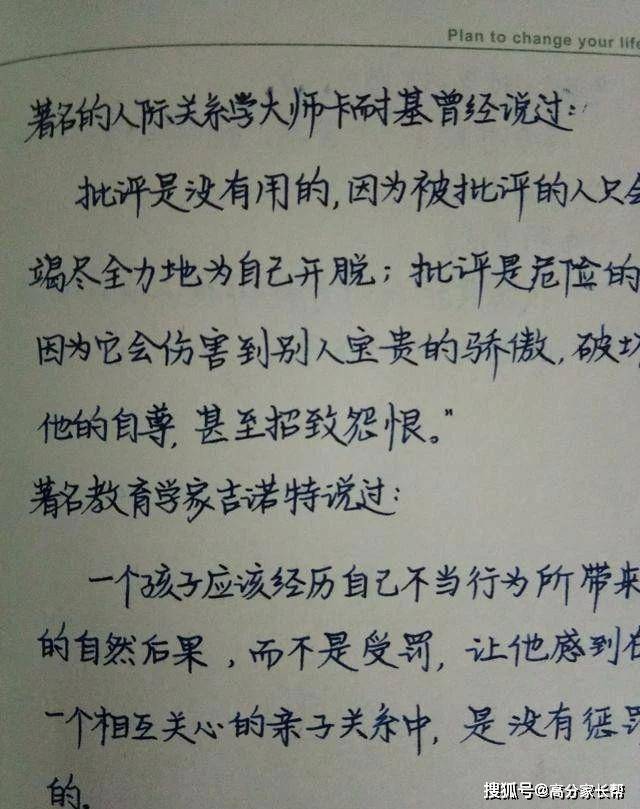 Plan to change your life
著名的人际关系学大师卡耐基曾经说过:
批评是没有用的,因为被批评的人只会
竭尽全力地为自己开脱;批评是危险的
因为它会伤害到别人宝贵的骄傲,破坏
他的自尊,甚至招致怨恨。"
著名教育学家吉诺特说过:
一个孩子应该经历自己不当行为所带来
的自然后果,而不是受罚,让他感到在
一个相互关心的亲子关系中,是没有惩罚
的。
搜狐号@高分家长帮